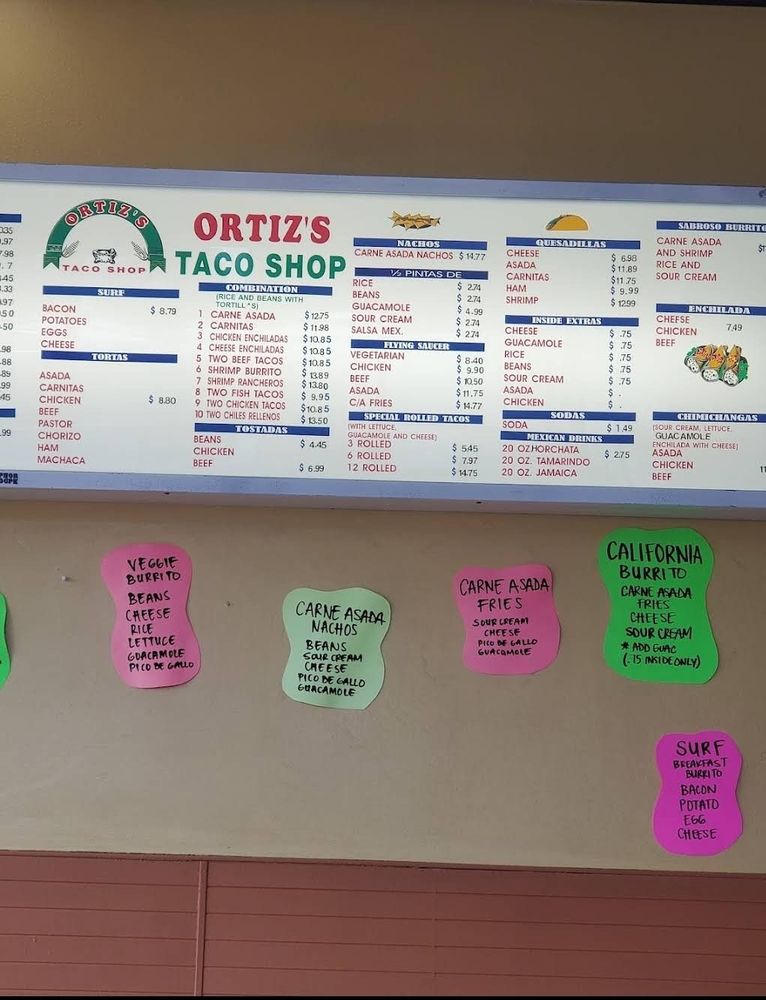 035
.97
7.98
. 7
.45
.33
.97
50
.50
.98
.88
.89
.99
.45
.99
ORTIZ'S
TACO SHOP
ORTIZ'S
TACO SHOP
SURF
BACON $ 8.79
POTATOES
EGGS
CHEESE
TORTAS
ASADA
CARNITAS
CHICKEN $ 8.80
BEEF
PASTOR
CHORIZO
HAM
MACHACA
COMBINATION
(RICE AND BEANS WITH
TORTILL^S)
1 CARNE ASADA $ 12.75
2 CARNITAS $ 11.98
3 CHICKEN ENCHILADAS $ 10.85
4 CHEESE ENCHILADAS $ 10.85
5 TWO BEEF TACOS $ 10.85
6 SHRIMP BURRITO $ 13.89
7 SHRIMP RANCHEROS $ 13.80
8 TWO FISH TACOS $ 9.95
9 TWO CHICKEN TACOS $ 10.85
10 TWO CHILES RELLENOS $ 13.50
TOSTADAS
BEANS $ 4.45
CHICKEN
BEEF $ 6.99
NACHOS
CARNE ASADA NACHOS $ 14.77
½ PINTAS DE
RICE $ 2.74
BEANS $ 2.74
GUACAMOLE $ 4.99
SOUR CREAM $ 2.74
SALSA MEX. $ 2.74
FLYING SAUCER
VEGETARIAN $ 8.40
CHICKEN $ 9.90
BEEF $ 10.50
ASADA $ 11.75
C/A FRIES $ 14.77
SPECIAL ROLLED TACOS
(WITH LETTUCE,
GUACAMOLE AND CHEESE)
3 ROLLED $ 5.45
6 ROLLED $ 7.97
12 ROLLED $ 14.75
QUESADILLAS
CHEESE $ 6.98
ASADA $ 11.89
CARNITAS $ 11.75
HAM $ 9.99
SHRIMP $ 12.99
INSIDE EXTRAS
CHEESE $ .75
GUACAMOLE $ .75
RICE $ .75
BEANS $ .75
SOUR CREAM $ .75
ASADA $ .
CHICKEN $ .
SODAS
SODA $ 1.49
MEXICAN DRINKS
20 OZ.HORCHATA $ 2.75
20 OZ. TAMARINDO
20 OZ. JAMAICA
SABROSO BURRITO
CARNE ASADA
AND SHRIMP
RICE AND
SOUR CREAM
ENCHILADA
CHEESE
CHICKEN 7.49
BEEF
CHIMICHANGAS
(SOUR CREAM, LETTUCE,
GUACAMOLE
ENCHILADA WITH CHEESE)
ASADA
CHICKEN 11
BEEF
VEGGIE
BURRITO
BEANS
CHEESE
RICE
LETTUCE
GUACAMOLE
PICO DE GALLO
CARNE ASADA
NACHOS
BEANS
SOUR CREAM
CHEESE
PICO DE GALLO
GUACAMOLE
CARNE ASADA
FRIES
SOUR CREAM
CHEESE
PICO DE GALLO
GUACAMOLE
CALIFORNIA
BURRITO
CARNE ASADA
FRIES
CHEESE
SOUR CREAM
* ADD GUAC
(.75 INSIDE ONLY)
SURF
BREAKFAST
BURRITO
BACON
POTATO
EGG
CHEESE